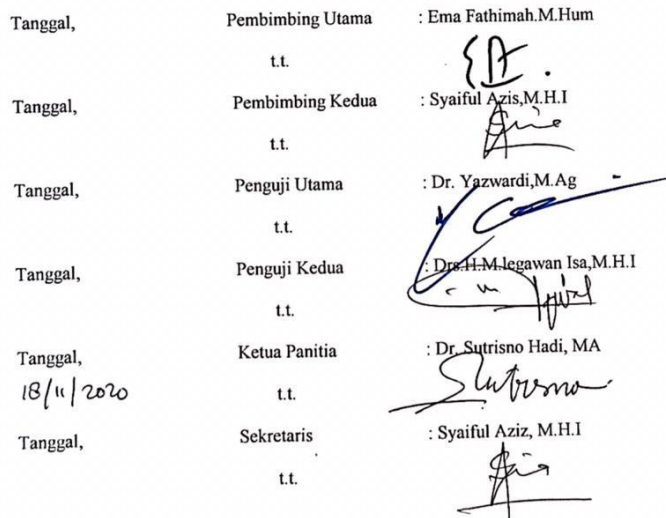 Tanggal, Pembimbing Utama : Ema Fathimah.M.Hum
t.t.
Tanggal, Pembimbing Kedua : Syaiful Azis,M.H.I
t.t.
Tanggal, Penguji Utama : Dr. Yazwardi,M.Ag
t.t.
Tanggal, Penguji Kedua : Drs.H.M.legawan Isa,M.H.I
t.t.
Tanggal, Ketua Panitia : Dr. Sutrisno Hadi, MA
18/11/2020 t.t. Sutrisno
Tanggal, Sekretaris : Syaiful Aziz, M.H.I
t.t.